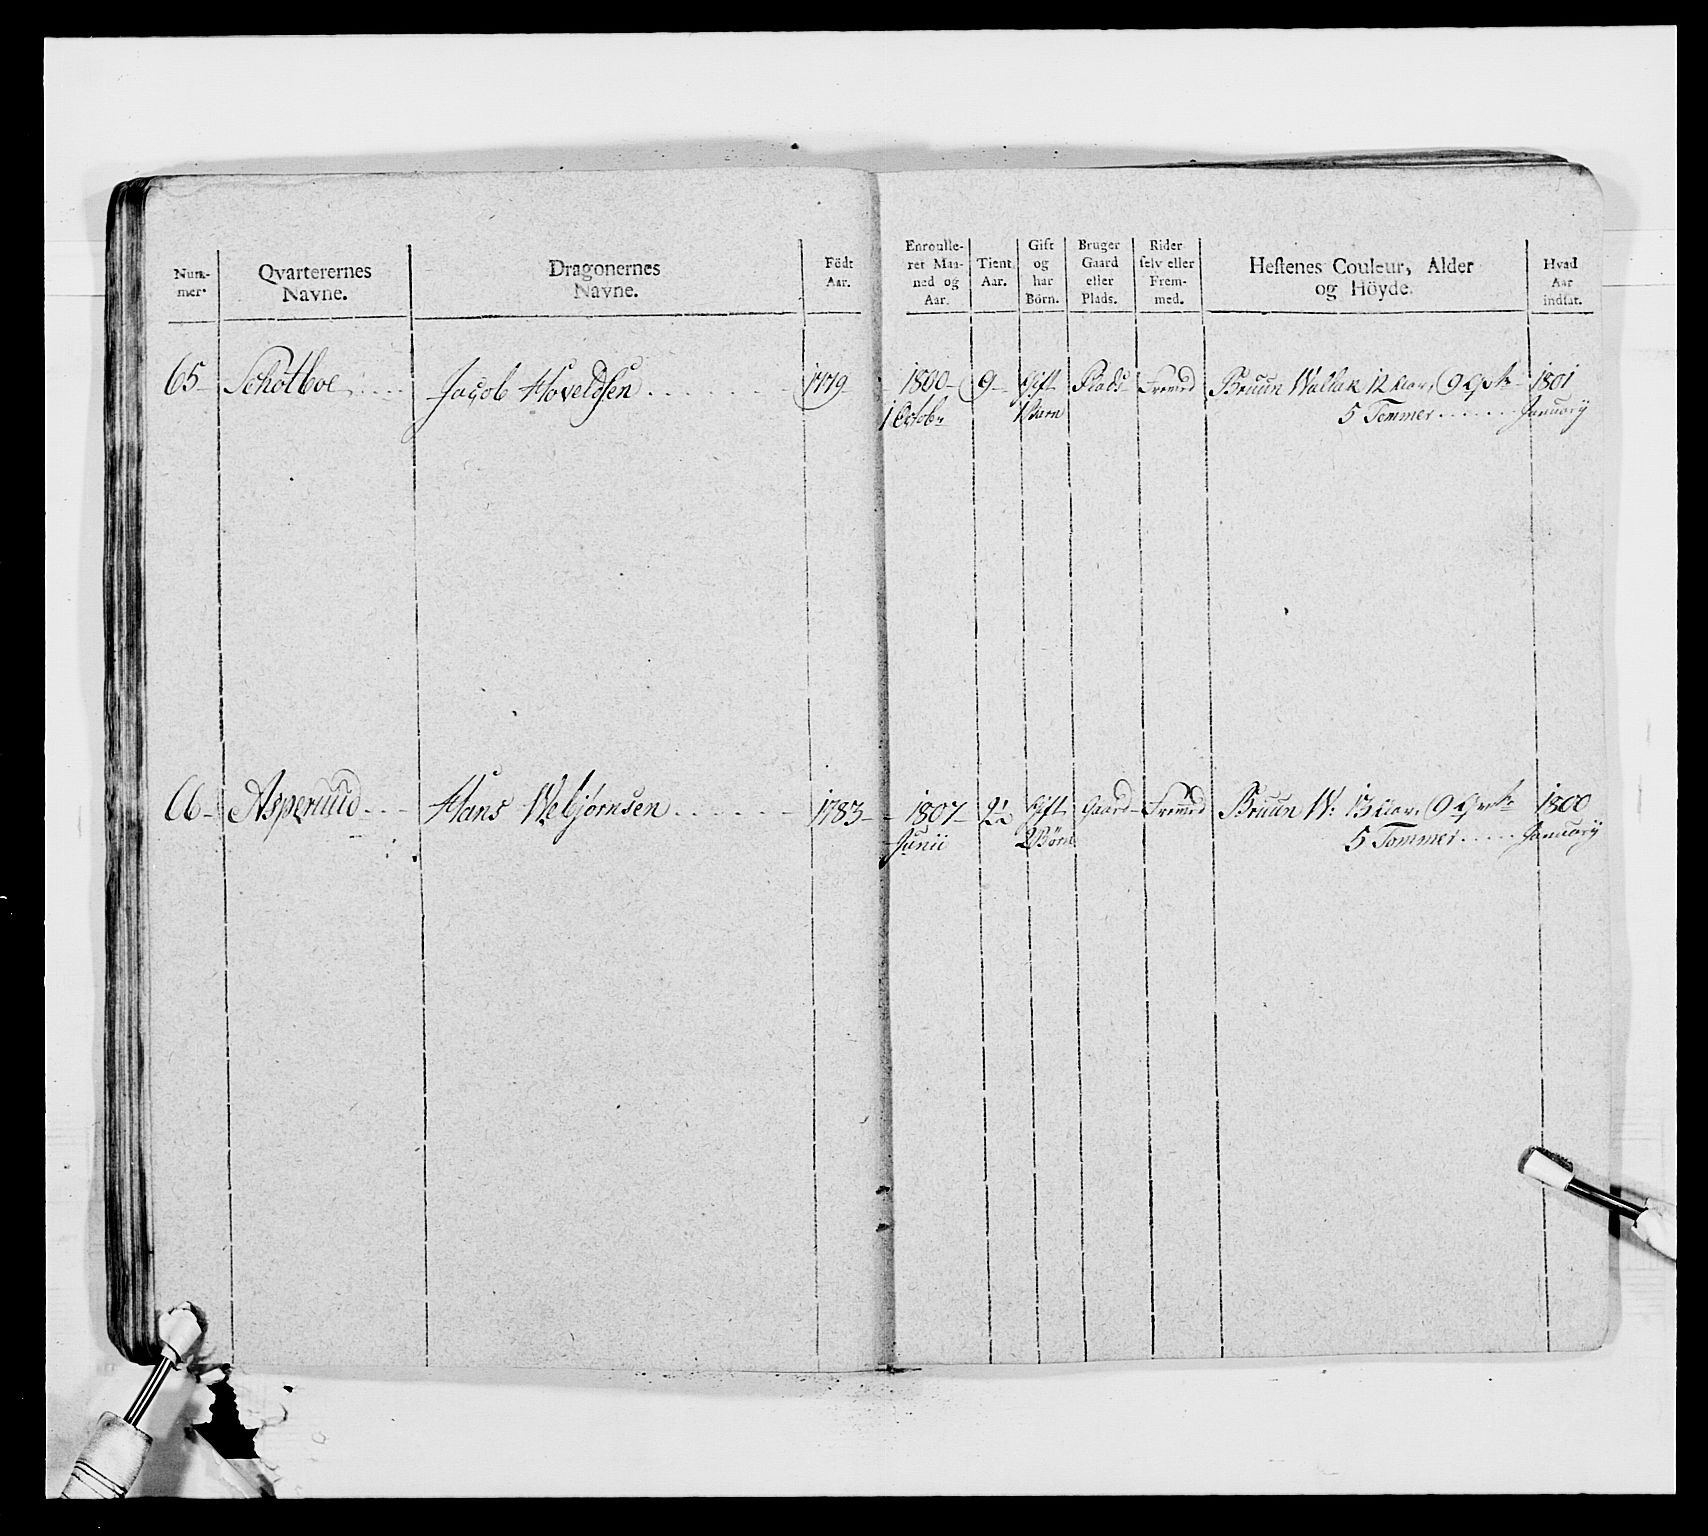 Num-
mer.
Qvarterernes
Navne.
Dragonernes
Navne.
Födt
Aar.
Enroulle-
ret Maa-
ned og
Aar.
Tient
Aar.
Gift
og
har
Börn.
Bruger
Gaard
eller
Plads.
Rider
selv eller
Frem-
med.
Hestenes Couleur, Alder
og Höyde.
Hvad
Aar
indsat.
65- Schotboe Jacob Hoveldsen 1779 - 1800 - 9 - Gift Plads - Fremd Bruun Wallak 12 Aar, 9 Qrt 1801
1 Octobr 1 Barn 5 Tommer January
66- Asperuud Hans Webjørnsen 1783 - 1807 - 2½ Gift Gaard - Fremd Bruun W: 13 Aar, 9 Qrt 1800
Junii 2 Börn 5 Tommer January